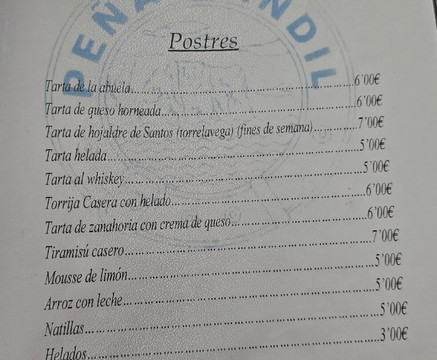 PEÑA NDIL
Postres
Tarta de la abuela...6'00€
Tarta de queso horneada...6'00€
Tarta de hojaldre de Santos (torrelavega) (fines de semana)...7'00€
Tarta helada...5'00€
Tarta al whiskey...5'00€
Torrija Casera con helado...6'00€
Tarta de zanahoria con crema de queso...6'00€
Tiramisú casero...7'00€
Mousse de limón...5'00€
Arroz con leche...5'00€
Natillas...5'00€
Helados...3'00€